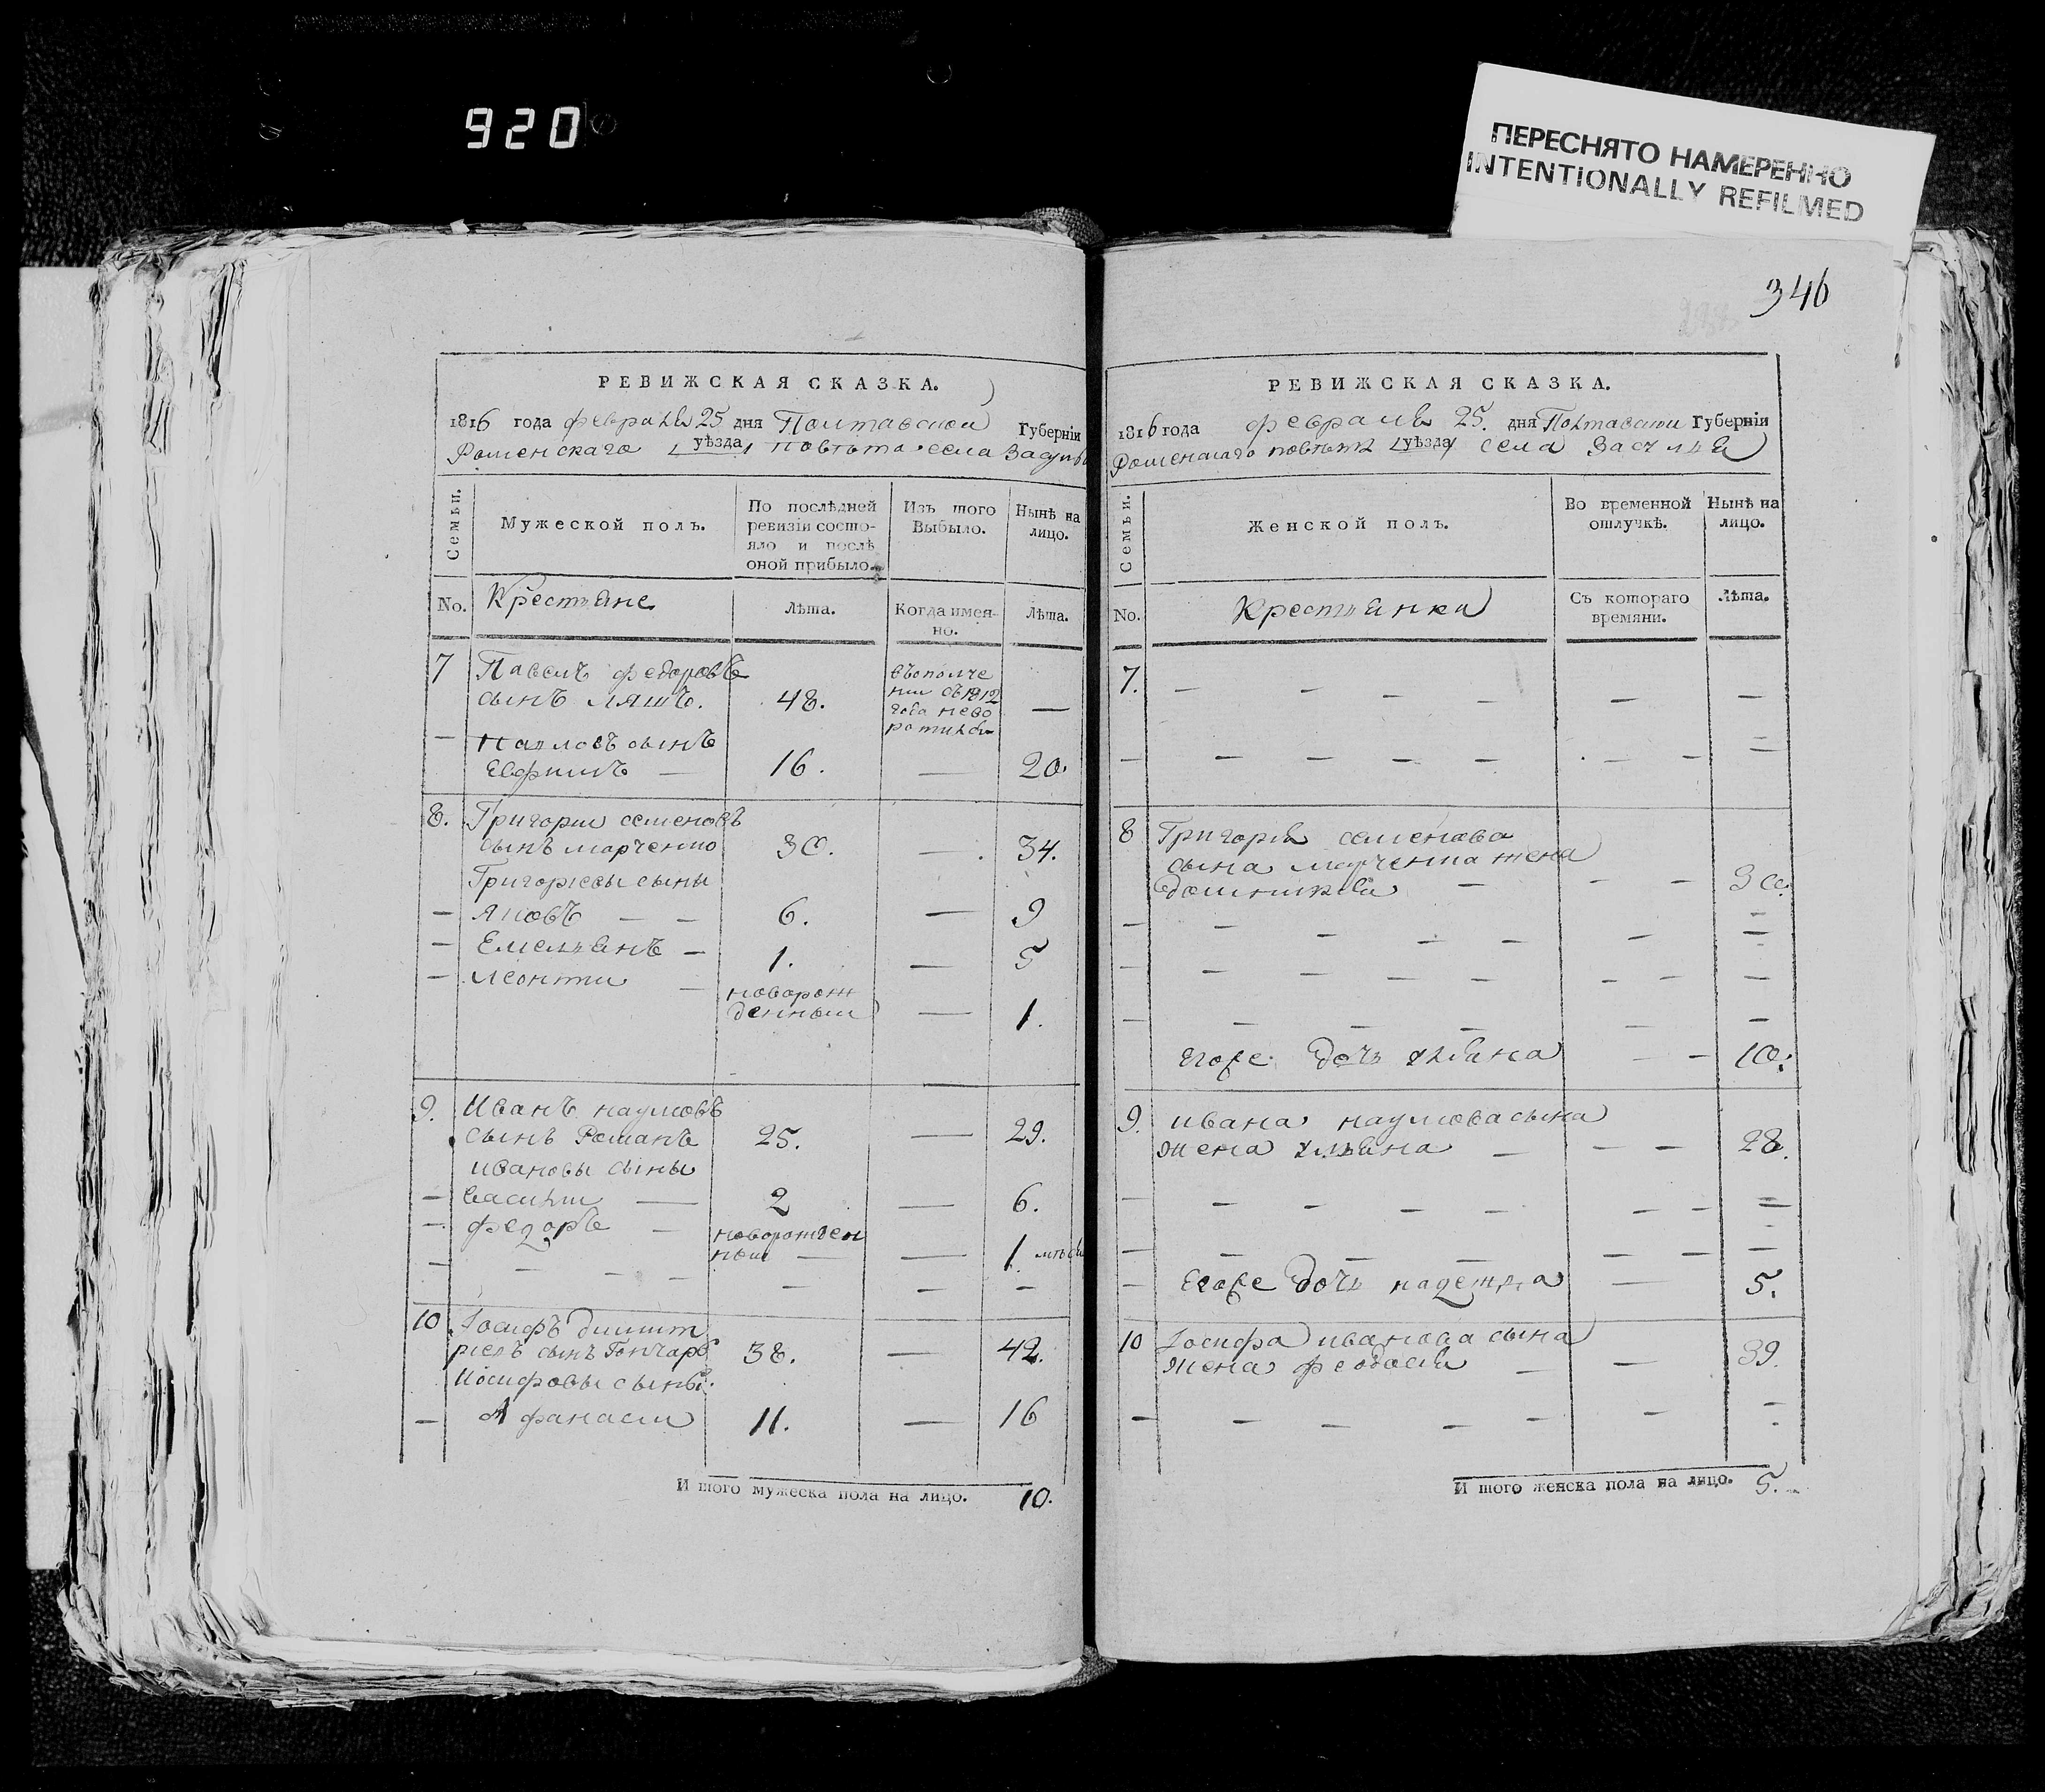 920
ПЕРЕСНЯТО НАМЕРЕННО
INTENTIONALLY REFILMED
346
РЕВИЖСКАЯ СКАЗКА.
1816 года февраля 25 дня Полтавской Губерніи
Роменскаго уѣзда повѣта села Засулья
Семьи.
Мужеской полъ.
По послѣдней ревизіи состояло и послѣ оной прибыло.
Изъ того Выбыло.
Нынѣ на лицо.
No.
Крестьяне
Лѣта.
Когда имеянно.
Лѣта.
7 Павелъ федоровъ
сынъ ляшъ. 48. въополче
нии съ 1812
года нево
ротился —
— Павловъ сынъ
Евфимъ — 16. — 20.
8. Григории семеновъ
сынъ марченко 30. — 34.
Григориевы сыны
— Яковъ — — 6. — 9
— Емельянъ — 1. — 5
— Леонтии — новорож
денныи — 1.
9. Иванъ наумовъ
сынъ Романъ 25. — 29.
ивановы сыны
— василии — 2 — 6.
— федоръ — новорожден
ныи — — 1
— — — — — — —
10 Іосифъ димит
риевъ сынъ Гончаръ 38. — 42.
Иосифовы сыны
— Афанасии 11. — 16
И того мужеска пола на лицо. 10.
РЕВИЖСКАЯ СКАЗКА.
1816 года февраля 25. дня Полтавскои Губерніи
Роменскаго повѣта уѣзда села Засулья
Семьи.
Женской полъ.
Во временной отлучкѣ.
Нынѣ на лицо.
No.
Крестьянки
Съ котораго времяни.
Лѣта.
7. — — — — — —
— — — — — — —
8 Григорія семенова
сына марченка жена
домникия — — — 30.
— — — — — — —
— — — — — — — —
— — — — — —
Егоже дочь ульяна — — 10.
9. ивана наумова сына
жена ульяна — — — 28.
— — — — — — — —
— — — — — — —
— Егоже дочь надежда — 5.
10 Іосифа иванова сына
жена феодосия — — 39.
— — — — — — —
И того женска пола на лицо. 5.